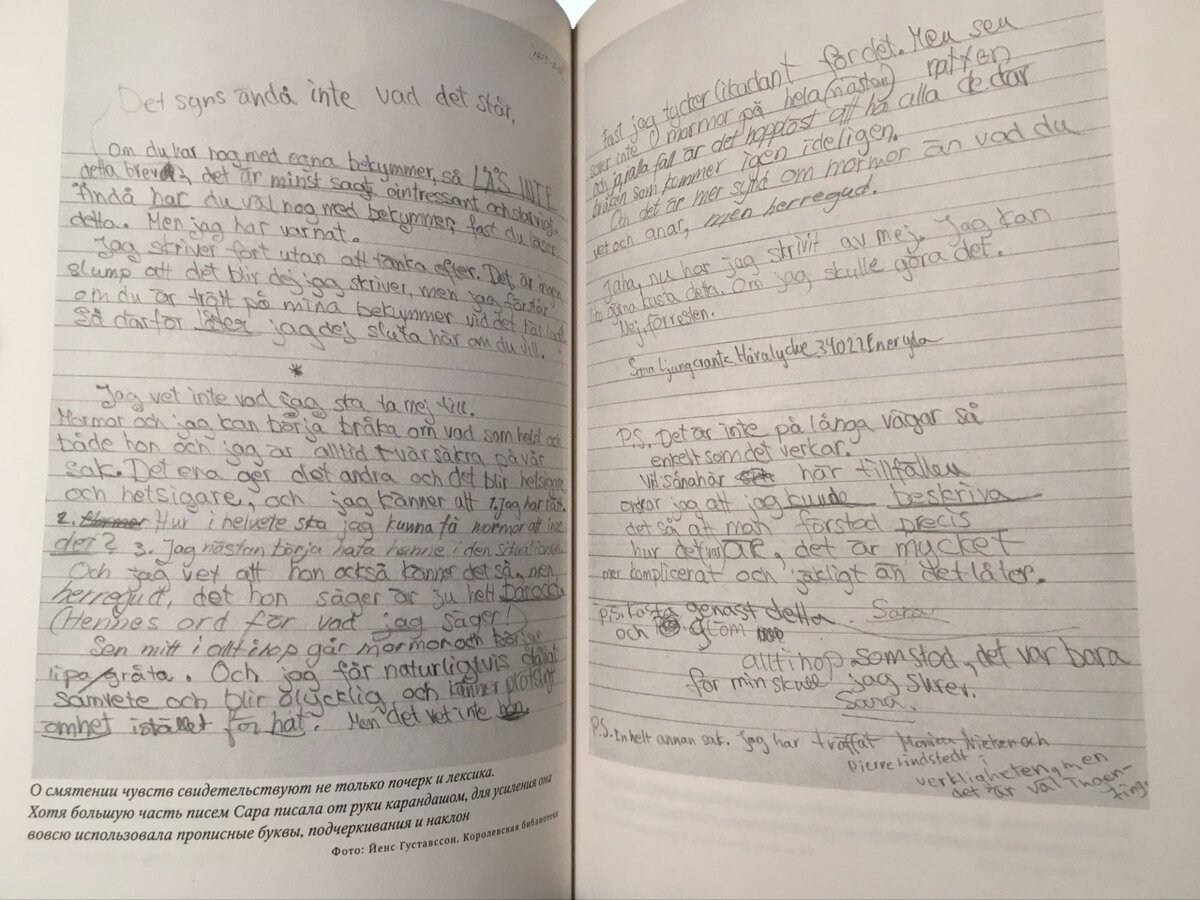 Det syns ändå inte vad det står.
Om du har nog med egna bekymmer, så LÄS INTE
detta brevet, det är minst sagt ointressant och slarvigt.
Ändå har du väl nog med bekymmer, fast du läser
detta. Men jag har varnat.
Jag skriver fort utan att tänka efter. Det är ingen
slump att det blir dej jag skriver, men jag förstår
om du är trött på mina bekymmer vid det här laget.
Så därför låter jag dej sluta här om du vill.
*
Jag vet inte vad jag ska ta mej till.
Mormor och jag kan börja bråka om vad som helst och
både hon och jag är alltid tvärsäkra på vår
sak. Det ena ger det andra och det blir hetsigare
och hetsigare, och jag känner att 1. Jag har rätt.
2. Hur i helvete ska jag kunna få mormor att inse
det? 3. Jag nästan börja hata henne i den situationen.
Och jag vet att hon också känner det så, men
herregud, det hon säger är ju helt barock.
(Hennes ord för vad jag säger!)
Sen mitt i alltihop går mormor och börjar
lipa/gråta. Och jag får naturligtvis dåligt
samvete och blir olycklig och känner plötsligt
ömhet istället för hat. Men det vet inte hon.
О смятении чувств свидетельствуют не только почерк и лексика.
Хотя большую часть писем Сара писала от руки карандашом, для усиления она
вовсю использовала прописные буквы, подчеркивания и наклон
Фото: Йенс Густавссон. Королевская библиотека
Fast jag tycker likadant för det. Men sen
sover inte mormor på hela (nästan) natten
och i alla fall är det hopplöst att ha alla de där
bråken som kommer igen ideligen.
Och det är mer synd om mormor än vad du
vet och anar, men herregud.
Jaha, nu har jag skrivit av mej. Jag kan
lika gärna kasta detta. Om jag skulle göra det.
Nej, förresten.
Sara Ljungcrantz, Håralycke, 34022 Eneryda
P.S. Det är inte på långa vägar så
enkelt som det verkar.
Vid såna här tillfällen
önskar jag att jag kunde beskriva
det så att man förstod precis
hur det var ÄR, det är mycket
mer komplicerat och jäkligt än det låter.
P.S. Kasta genast detta. Sara
och glöm
alltihop som stod, det var bara
för min skull jag skrev.
Sara.
P.S. Enhelt annan sak. Jag har träffat Monica Nielsen och
Pierre Lindstedt i
verkligheten, men
det är väl ingen-
ting.